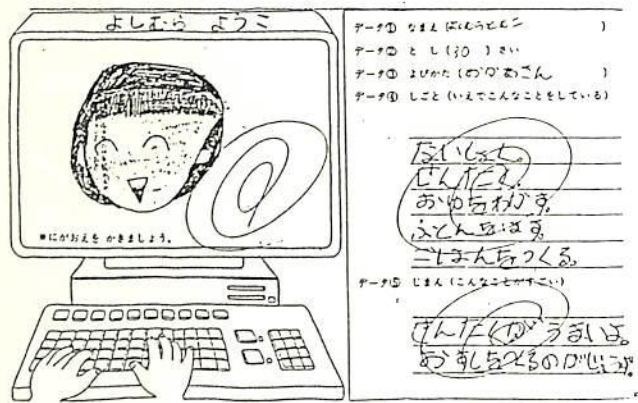 よしむら ようこ
※にがおえを かきましょう。
データ① なまえ (よしむらともこ)
データ② とし (30) さい
データ③ よびかた (おかあさん)
データ④ しごと (いえでこんなことをしている)
ないしょく。
せんたく。
おゆをわかす。
ふとんをほす。
ごはんをつくる。
データ⑤ じまん (こんなことがすごい)
せんたくが うまいよ。
おすしをつくるのがじょうず。